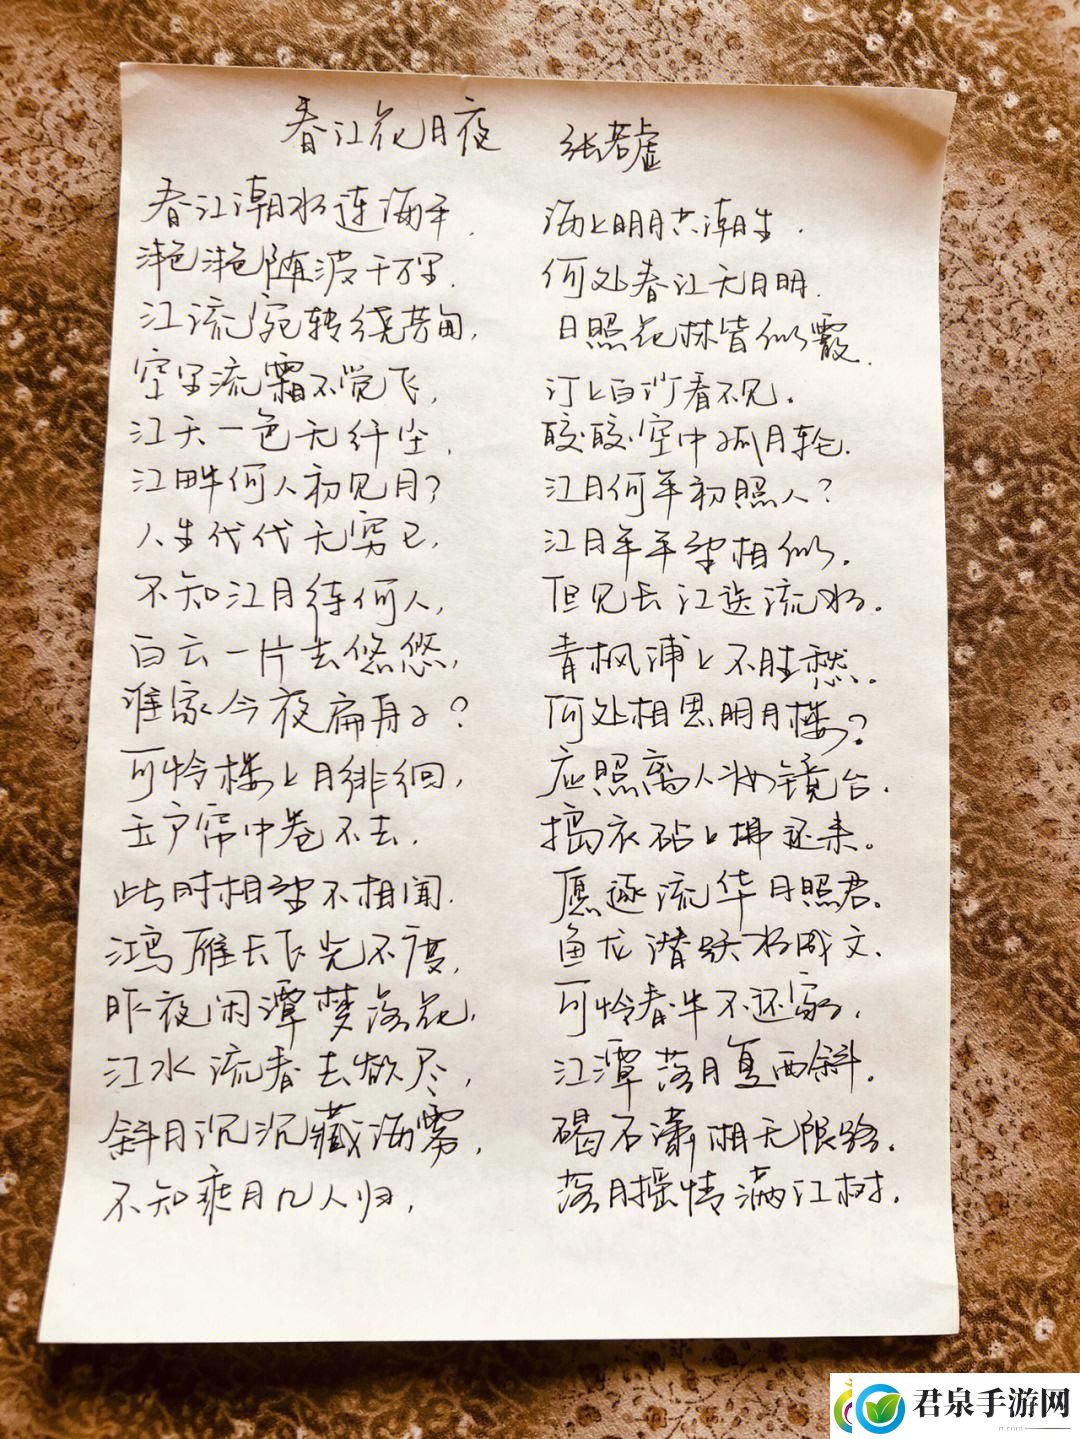 春江花月夜 张若虚
春江潮水连海平, 海上明月共潮生.
滟滟随波千万里. 何处春江无月明.
江流宛转绕芳甸, 月照花林皆似霰.
空里流霜不觉飞, 汀上白沙看不见.
江天一色无纤尘, 皎皎空中孤月轮.
江畔何人初见月? 江月何年初照人?
人生代代无穷已, 江月年年望相似.
不知江月待何人, 但见长江送流水.
白云一片去悠悠, 青枫浦上不胜愁.
谁家今夜扁舟子? 何处相思明月楼?
可怜楼上月徘徊, 应照离人妆镜台.
玉户帘中卷不去, 捣衣砧上拂还来.
此时相望不相闻. 愿逐流华月照君.
鸿雁长飞光不度, 鱼龙潜跃水成文.
昨夜闲潭梦落花, 可怜春半不还家,
江水流春去欲尽, 江潭落月复西斜.
斜月沉沉藏海雾, 碣石潇湘无限路.
不知乘月几人归, 落月摇情满江树.
君泉手游网